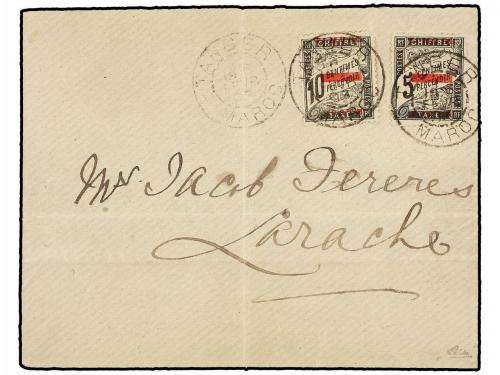 TANGER
MAROC
CHIFFRE
10 CENTIMES
PERCEVOIR
TAXE
CHIFFRE
5 CENTIMES
PERCEVOIR
TAXE
MAROC
Mr. Jacob Fereres
Larache